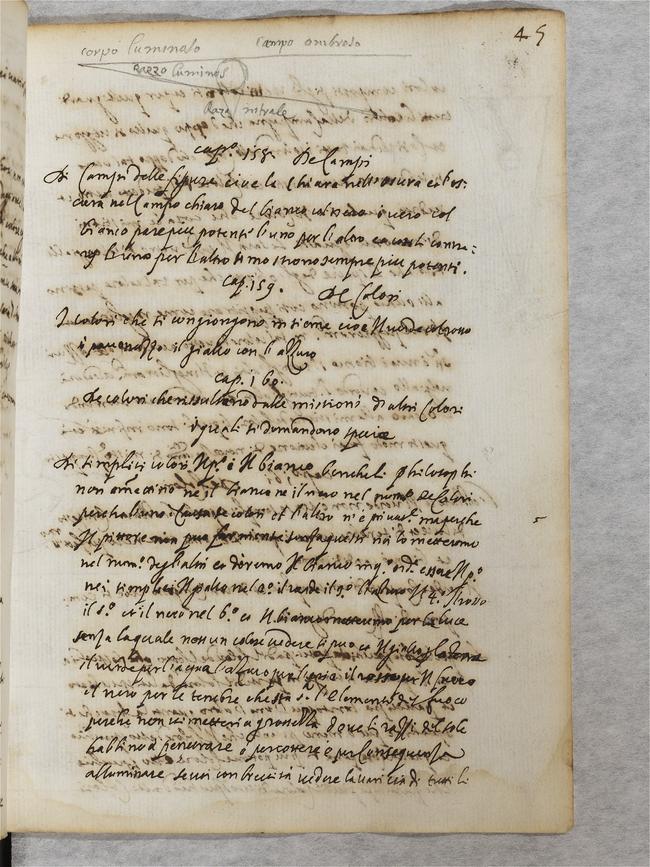 45
corpo luminoso campo ombroso
Razzo luminos
Razo
cap.º 158. De Campi
Di Campi delle figure cioe la chiara nell oscura et l os:
cura nel Campo chiaro del bianco col nero o vero col
bianco pare piu potente l'uno per l'altro
per l'altro si mostrono sempre piu potenti.
cap. 159. De Colori
I colori che si congiongono insieme cioe il verde col rosso
o pavonazzo il giallo con l'azzuro
cap. 160.
De colori che risultano dalle mistioni d'altri Colori
i quali si domandano specie
Di simplici colori il p.º è il bianco benche li philosophi
non ametino ne il bianco ne il nero nel num.º de Colori
perche l'uno è causa de colori et l'altro n'è privat.e ma perche
il pittore non puo far questi noi lo metteremo
nel num.º degl altri et diremo il bianco in q.º ord.e essere il p.º
ne i simplici il giallo nel 2.º il verde il 3.º l'azuro il 4.º il rosso
il 5.º et il nero nel 6.º et il bianco metteremo per la luce
senza la quale nessun colore vedere si puo et il giallo p la terra
il verde per l'aqua l'azzuro per l'aria il rosso per il fuoco
et il nero per le tenebre che sta s.ª l'elemento del fuoco
perche non vi è materia o grossezza dove li razzi del sole
habbino à penetrare o percottere e per Consequenza
alluminare se vuoi con brevità vedere la varietà di tutti li